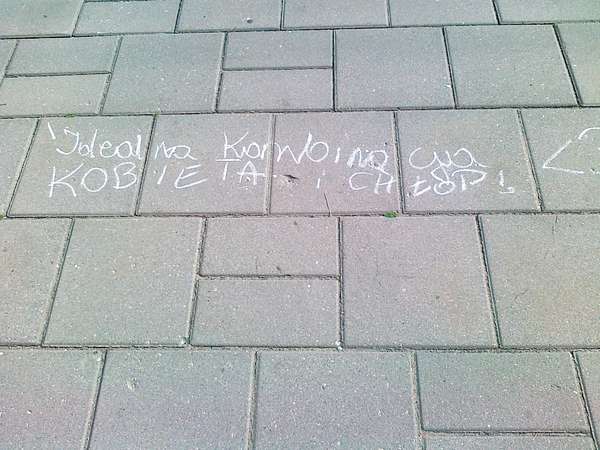 Idealna Kombinacja
KOBIETA i CHŁOP!